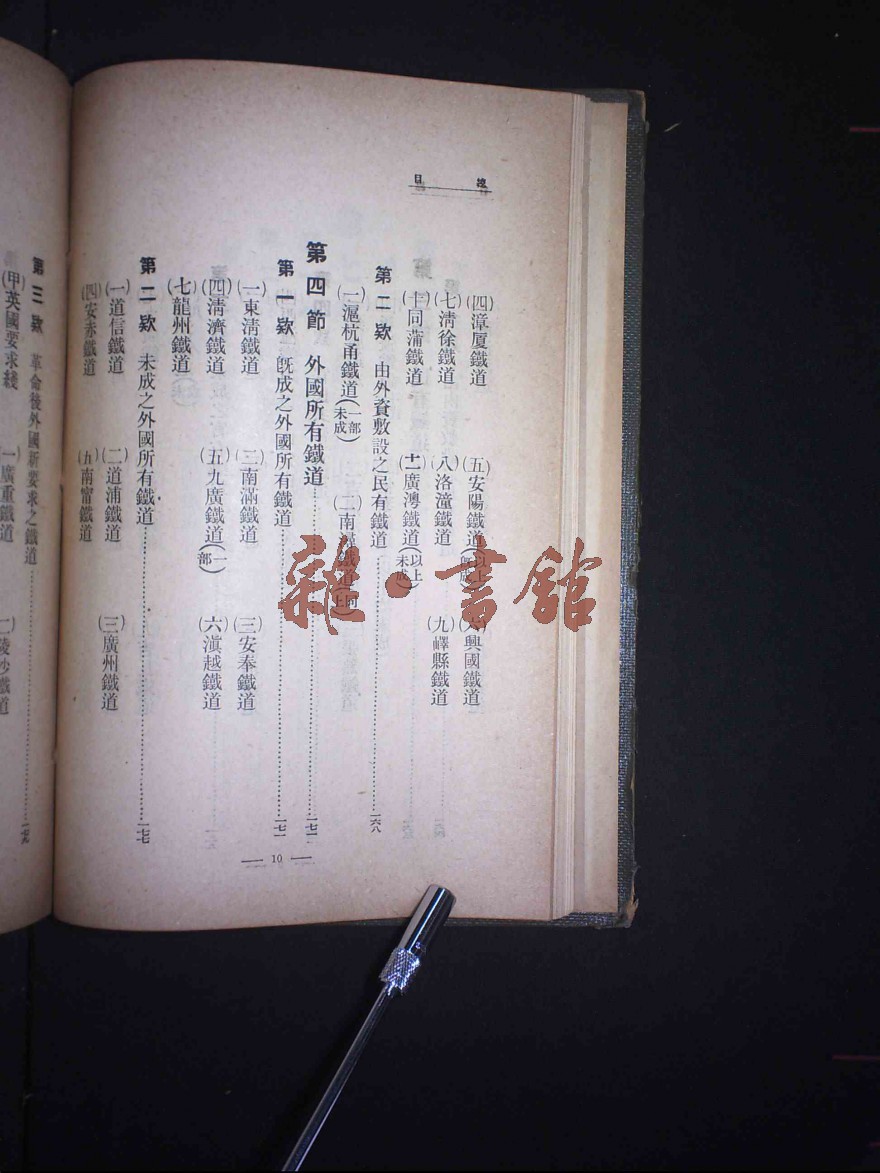 總目
(四)漳厦鐵道 (五)安陽鐵道(以上既成) (六)興國鐵道
(七)淸徐鐵道 (八)洛潼鐵道 (九)嶧縣鐵道
(十)同蒲鐵道 (十一)廣澳鐵道(以上未成)
第二欵 由外資敷設之民有鐵道……一六八
(一)滬杭甬鐵道(一部未成) (二)南潯鐵道(同上)
第四節 外國所有鐵道……一七一
第一欵 旣成之外國所有鐵道……一七一
(一)東淸鐵道 (三)南滿鐵道 (三)安奉鐵道
(四)淸濟鐵道 (五)九廣鐵道(一部) (六)滇越鐵道
(七)龍州鐵道
第二欵 未成之外國所有鐵道……一七七
(一)道信鐵道 (二)道浦鐵道 (三)廣州鐵道
(四)安赤鐵道 (五)南富鐵道
第三欵 革命後外國所要求之鐵道……一七八
(甲)英國要求綫 (一)廣重鐵道
— 10 —
雜·書館